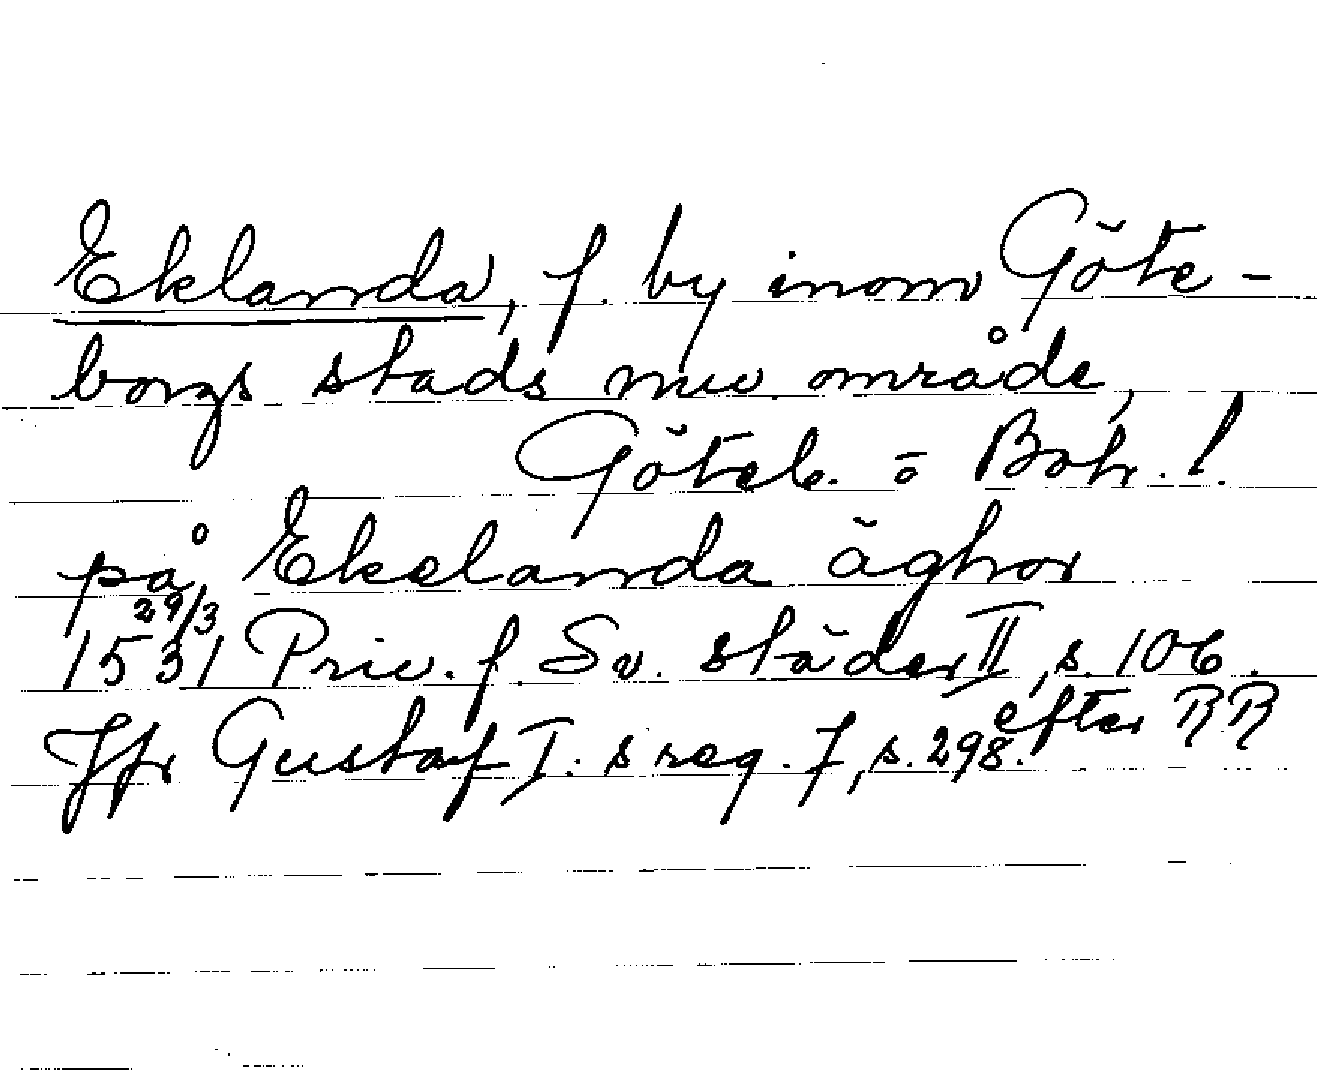 Eklanda, f. by inom Göte-
borgs stads nuv. område,
Göteb. o Boh. l.
på Ekelanda äghor
29/3
1531 Priv. f. Sv. städer II, s. 106.
Jfr Gustaf I:s reg. 7, s. 298. efter RR